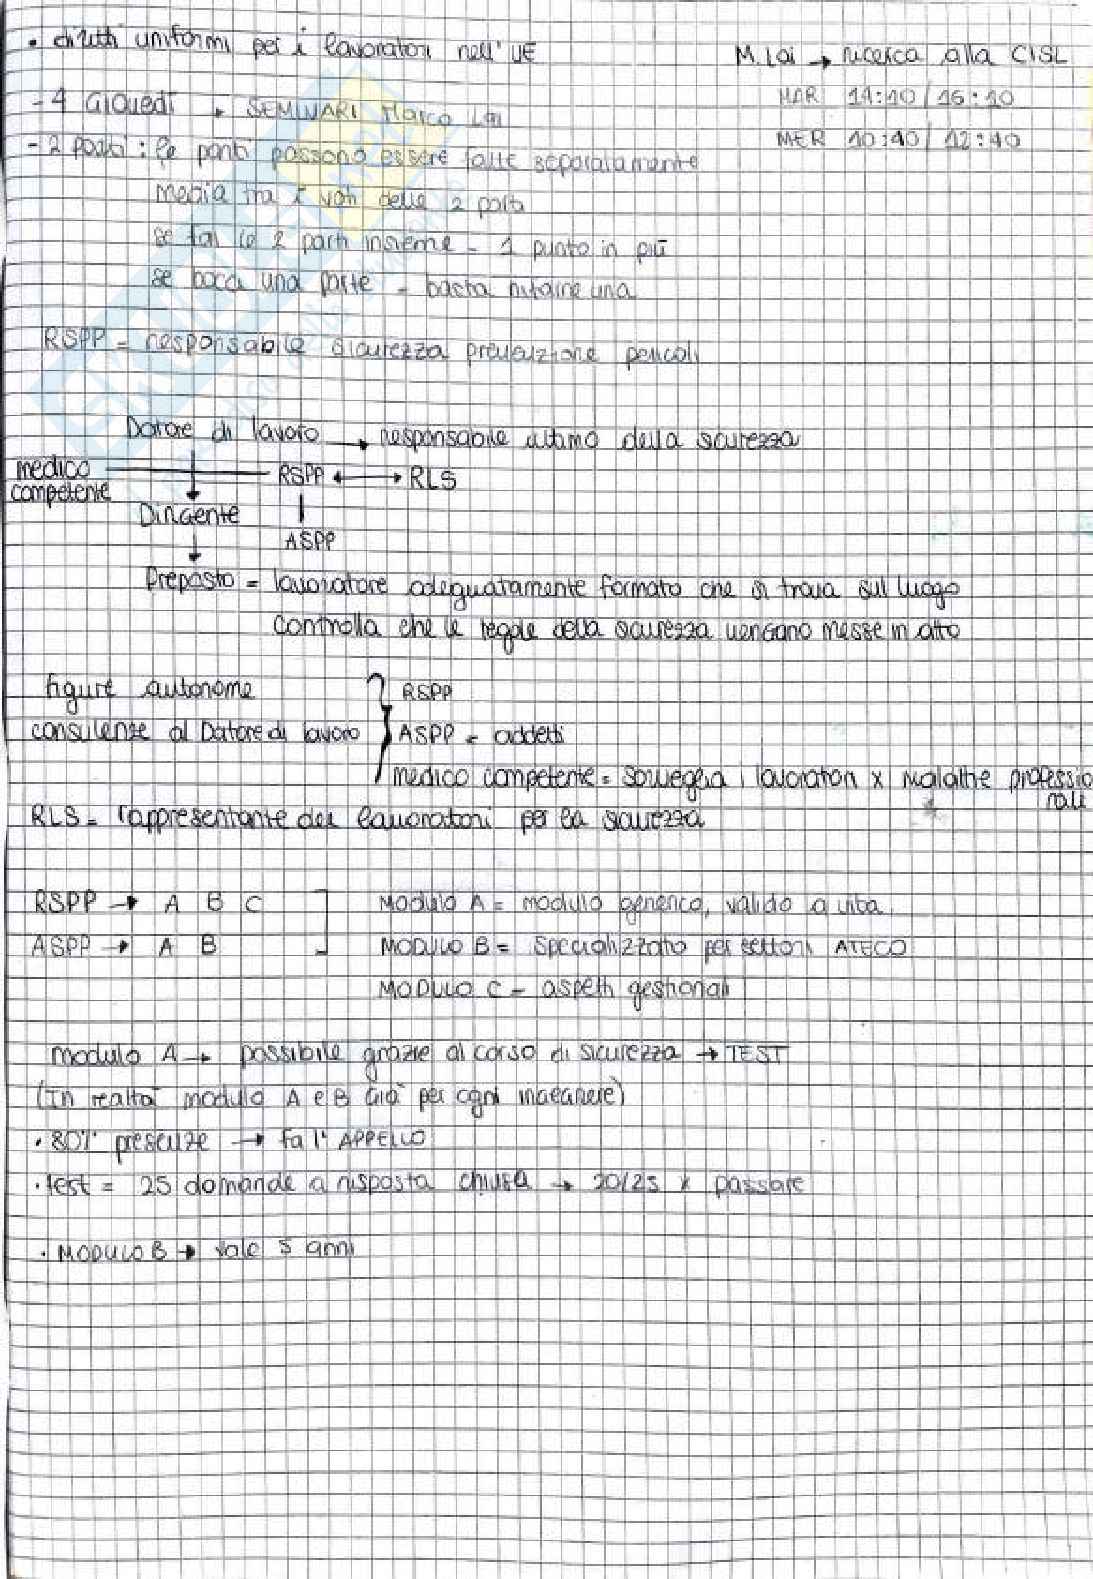 • diritti uniformi per i lavoratori nell'UE
M. Lai → ricerca alla CISL
MAR 14:10 / 16:10
MER 10:40 / 12:40
- 4 Giovedì → SEMINARI Marco Lai
- 2 parti: le parti possono essere fatte separatamente
media tra i voti delle 2 parti
se fai le 2 parti insieme - 1 punto in più
se bocci una parte - basta rifarne una
RSPP = responsabile sicurezza prevenzione pericoli
Datore di lavoro → responsabile ultimo della sicurezza
medico competente
RSPP ↔ RLS
Dirigente
ASPP
Preposto = lavoratore adeguatamente formato che si trova sul luogo
controlla che le regole della sicurezza vengano messe in atto
figure autonome
consulenze al Datore di lavoro
RSPP
ASPP = addetti
medico competente = sorveglia i lavoratori x malattie professionali
RLS = rappresentante dei lavoratori per la sicurezza
RSPP → A B C
ASPP → A B
MODULO A = modulo generico, valido a vita
MODULO B = specializzato per settori ATECO
MODULO C - aspetti gestionali
modulo A → possibile grazie al corso di sicurezza → TEST
(in realtà modulo A e B già per ogni ingegnere)
• 80% presenze → fa l'APPELLO
• test = 25 domande a risposta chiusa → 20/25 x passare
• MODULO B → vale 5 anni